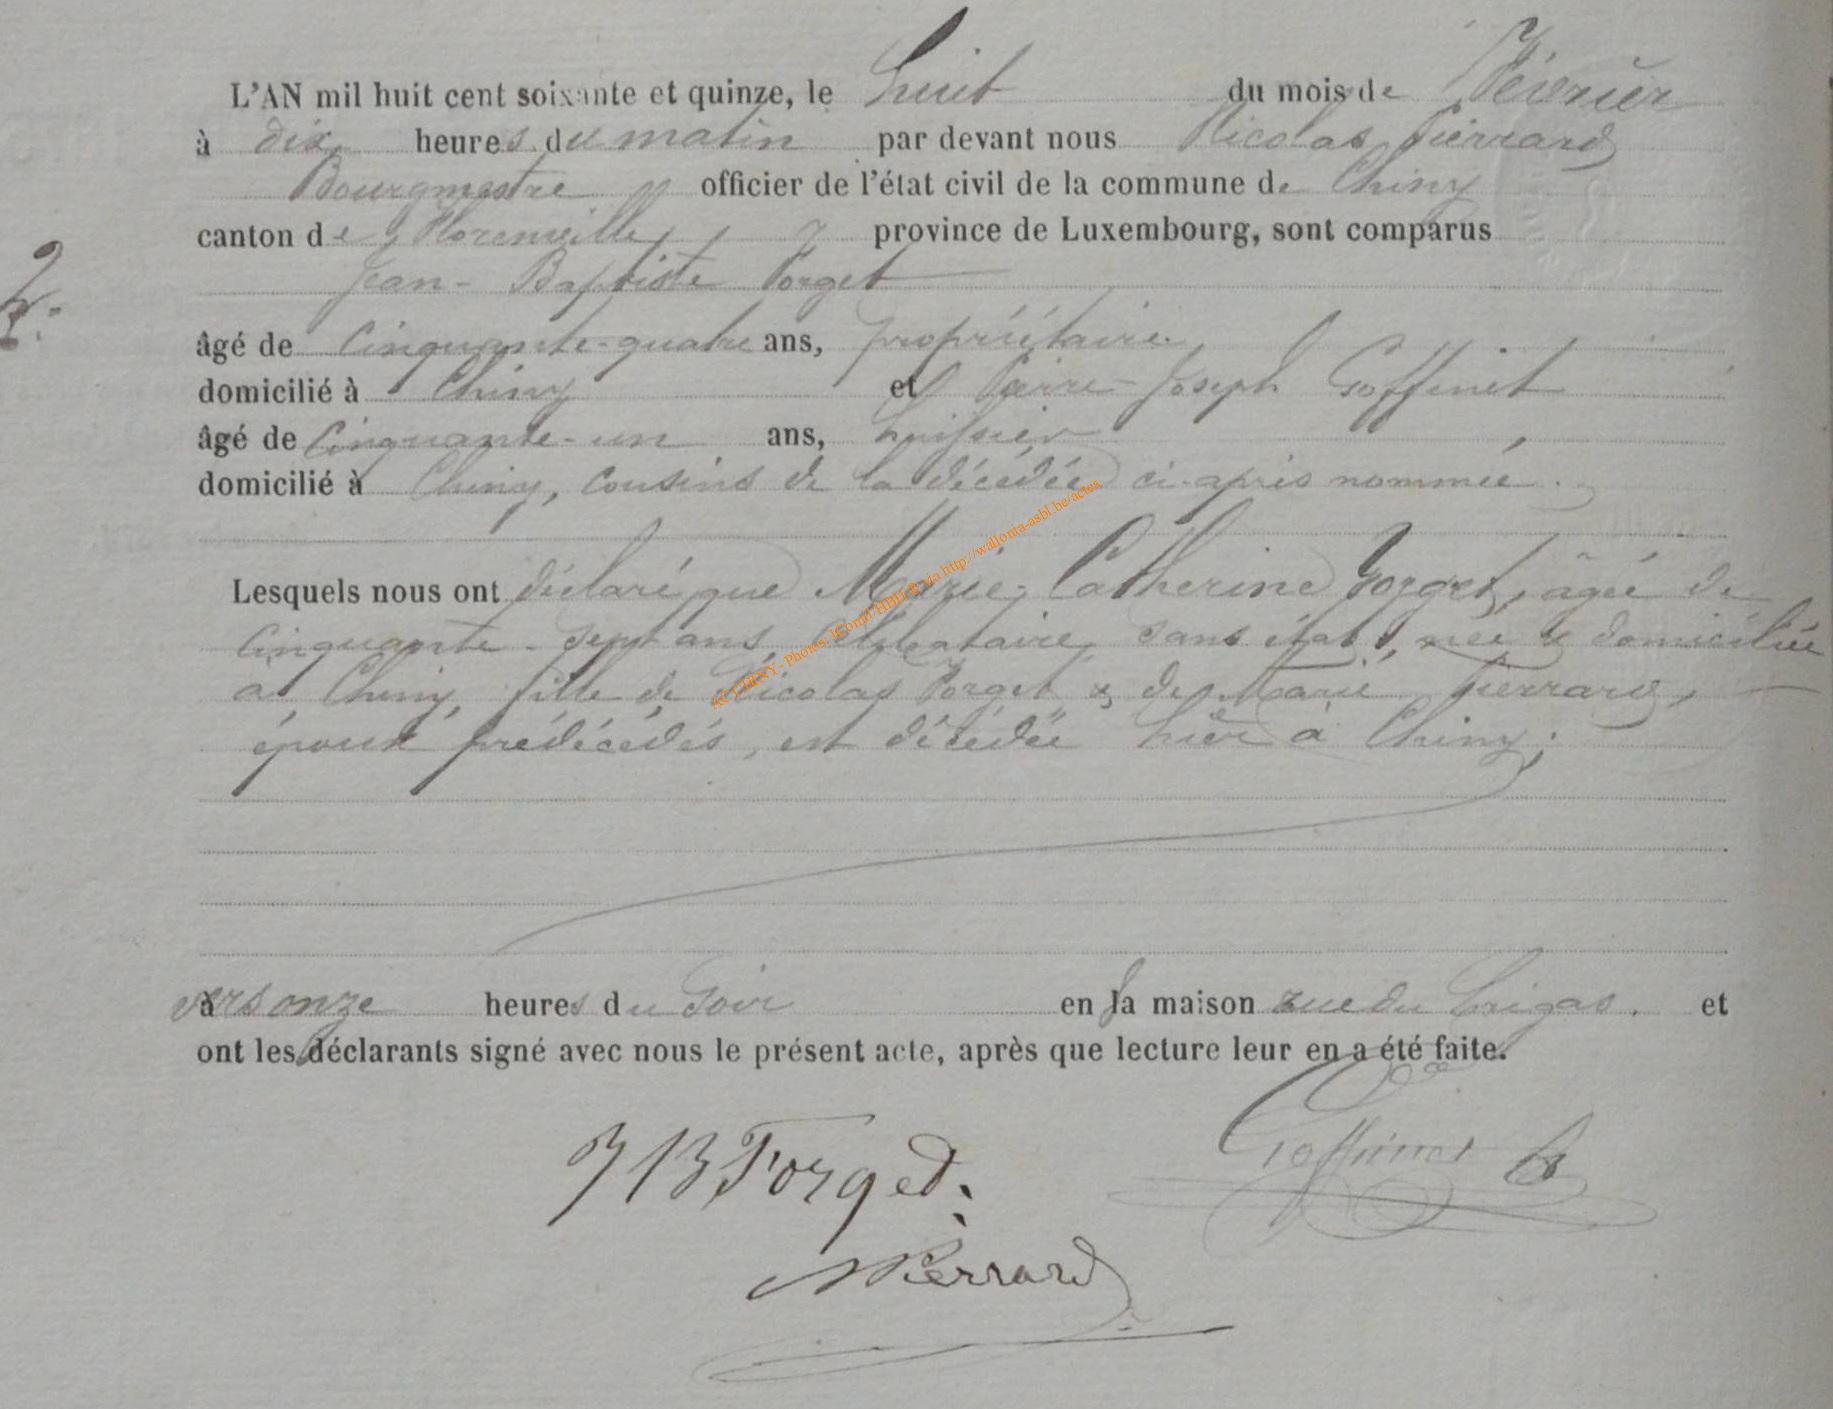 L'AN mil huit cent soixante et quinze, le huit du mois de Février
à dix heures du matin par devant nous Nicolas Pierrard
Bourgmestre officier de l'état civil de la commune de Chiny
canton de Florenville, province de Luxembourg, sont comparus
Jean-Baptiste Forget
âgé de cinquante-quatre ans, propriétaire,
domicilié à Chiny et Pierre-Joseph Goffinet
âgé de cinquante-un ans, huissier,
domicilié à Chiny, cousins de la décédée ci-après nommée.
Lesquels nous ont déclaré que Marie-Catherine Forget, âgée de
cinquante-sept ans, célibataire, sans état, née & domiciliée
à Chiny, fille de Nicolas Forget & de Marie Pierrard,
époux prédécédés, est décédée hier à Chiny;
vers onze heures du soir en sa maison rue du et
ont les déclarants signé avec nous le présent acte, après que lecture leur en a été faite.
JB Forget. Goffinet
NPierrard
2.
AC CHINY - Photos: JComil HBHB via http://wallonia-asbl.be/actes